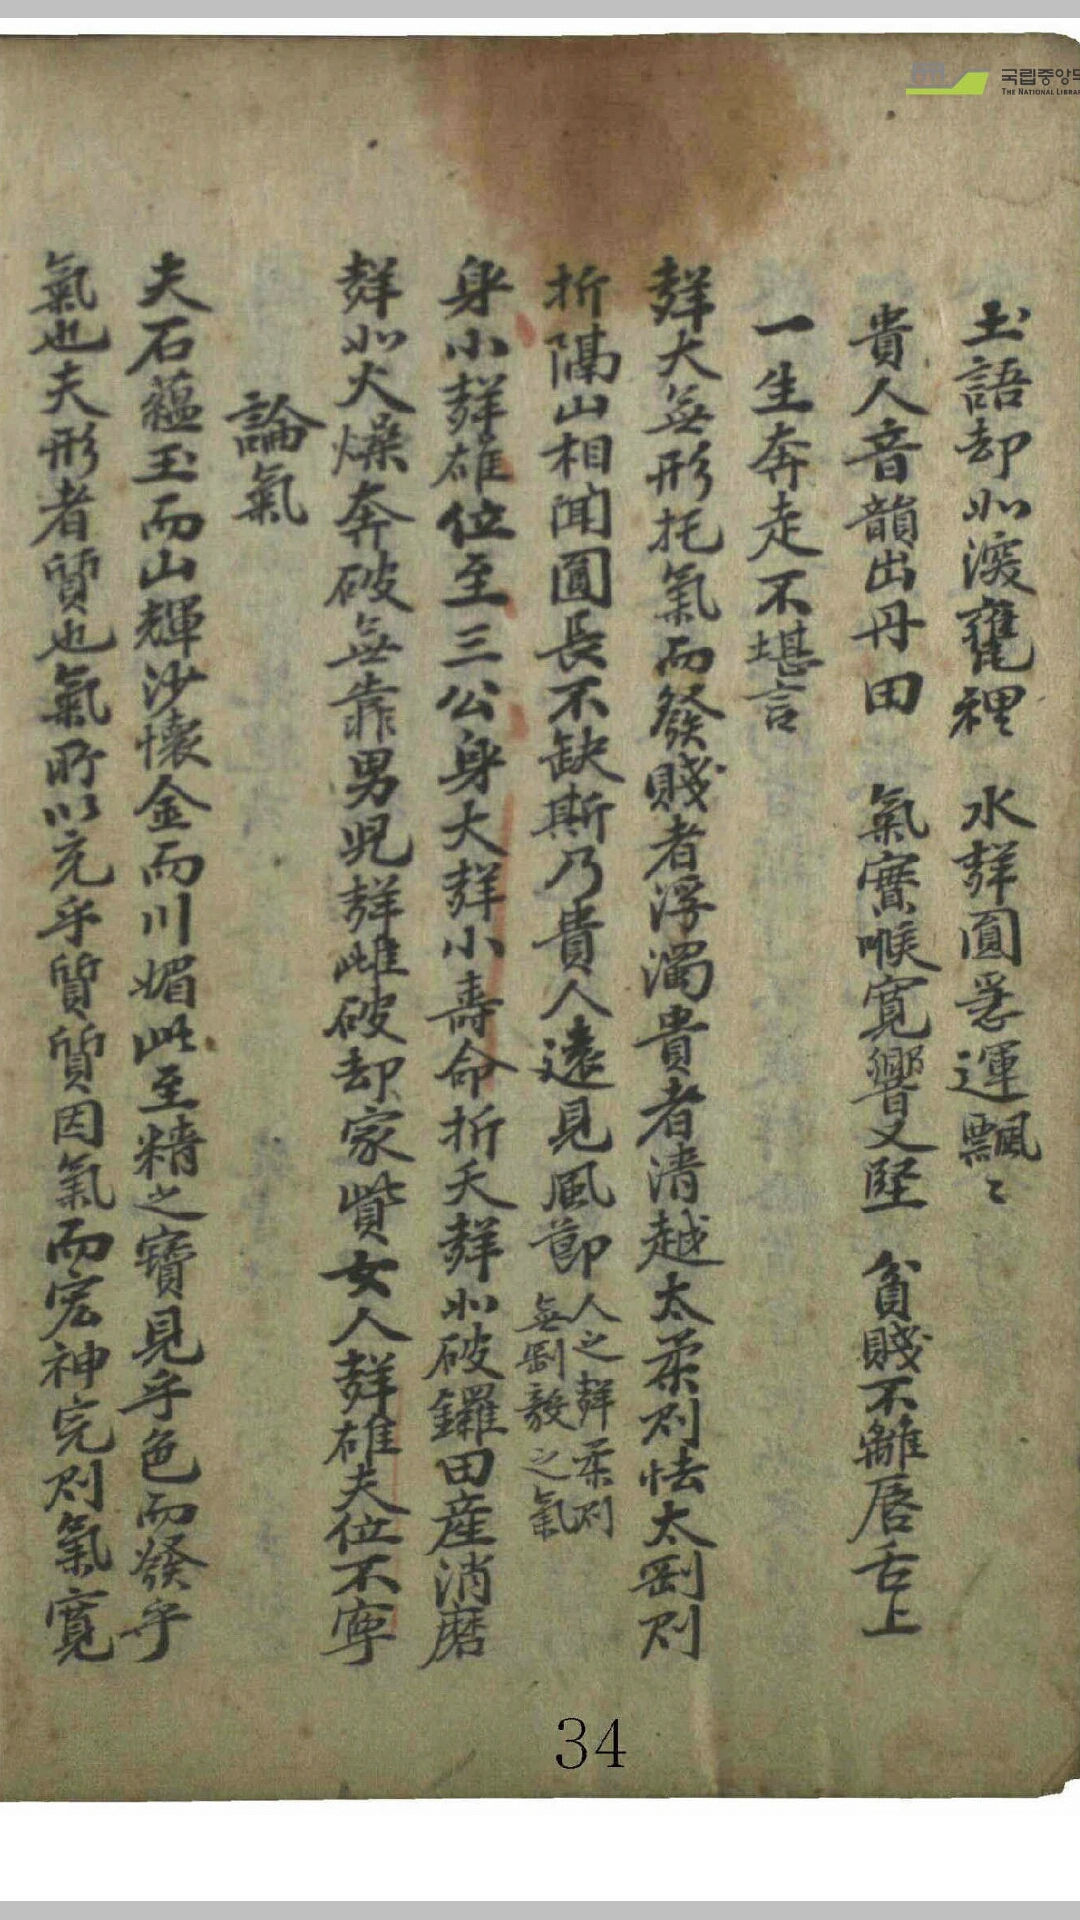 国립중앙도
THE NATIONAL LIBRAR
土語却如深甕裡 水聲圓急運飄〻
貴人音韻出丹田 氣實喉寬響又堅 貧賤不離唇舌上
一生奔走不堪言
聲大無形托氣而發賤者浮濁貴者清越太柔則怯太剛則
折隔山相聞圓長不缺斯乃貴人遠見風節
人之聲柔則
無剛毅之氣
身小聲雄位至三公身大聲小壽命折夭聲如破鑼田産消磨
聲如火燥奔破無靠男児聲雌破却家貲女人聲雄夫位不寧
論氣
夫石蘊玉而山輝沙懷金而川媚此至精之寶見乎色而發乎
氣也夫形者質也氣所以充乎質質因氣而宏神完則氣寬
34